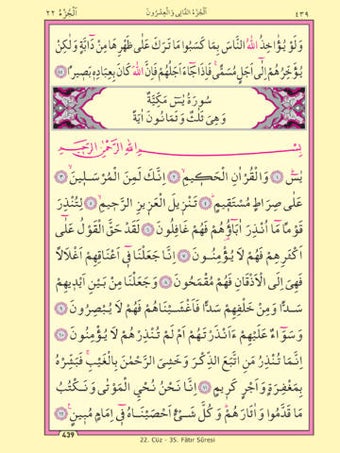 اَلْجُزْءُ ٢٢ اَلْجُزْءُ الثَّانِى وَالْعِشْرُونَ ٤٣٩
وَلَوْ يُؤَاخِذُ اللّٰهُ النَّاسَ بِمَا كَسَبُوا مَا تَرَكَ عَلٰى ظَهْرِهَا مِنْ دَٓابَّةٍ وَلٰكِنْ
يُؤَخِّرُهُمْ اِلٰٓى اَجَلٍ مُسَمًّىۚ فَاِذَا جَٓاءَ اَجَلُهُمْ فَاِنَّ اللّٰهَ كَانَ بِعِبَادِه۪ بَص۪يرًا ﴿٤٥﴾
سُورَةُ يٰسٓ مَكِّيَّةٌ
وَهِىَ ثَلٰثٌ وَثَمَانُونَ اٰيَةً
بِسْمِ اللّٰهِ الرَّحْمٰنِ الرَّح۪يمِ
يٰسٓ ﴿١﴾ وَالْقُرْاٰنِ الْحَك۪يمِ ﴿٢﴾ اِنَّكَ لَمِنَ الْمُرْسَل۪ينَ ﴿٣﴾
عَلٰى صِرَاطٍ مُسْتَق۪يمٍ ﴿٤﴾ تَنْز۪يلَ الْعَز۪يزِ الرَّح۪يمِ ﴿٥﴾ لِتُنْذِرَ
قَوْمًا مَٓا اُنْذِرَ اٰبَٓاؤُ۬هُمْ فَهُمْ غَافِلُونَ ﴿٦﴾ لَقَدْ حَقَّ الْقَوْلُ عَلٰٓى
اَكْثَرِهِمْ فَهُمْ لَا يُؤْمِنُونَ ﴿٧﴾ اِنَّا جَعَلْنَا ف۪ٓى اَعْنَاقِهِمْ اَغْلَالًا
فَهِىَ اِلَى الْاَذْقَانِ فَهُمْ مُقْمَحُونَ ﴿٨﴾ وَجَعَلْنَا مِنْ بَيْنِ اَيْد۪يهِمْ
سَدًّا وَمِنْ خَلْفِهِمْ سَدًّا فَاَغْشَيْنَاهُمْ فَهُمْ لَا يُبْصِرُونَ ﴿٩﴾
وَسَوَٓاءٌ عَلَيْهِمْ ءَاَنْذَرْتَهُمْ اَمْ لَمْ تُنْذِرْهُمْ لَا يُؤْمِنُونَ ﴿١٠﴾
اِنَّمَا تُنْذِرُ مَنِ اتَّبَعَ الذِّكْرَ وَخَشِىَ الرَّحْمٰنَ بِالْغَيْبِۚ فَبَشِّرْهُ
بِمَغْفِرَةٍ وَاَجْرٍ كَر۪يمٍ ﴿١١﴾ اِنَّا نَحْنُ نُحْيِ الْمَوْتٰى وَنَكْتُبُ
مَا قَدَّمُوا وَاٰثَارَهُمْۜ وَكُلَّ شَىْءٍ اَحْصَيْنَاهُ ف۪ٓى اِمَامٍ مُب۪ينٍ ﴿١٢﴾
439
22. Cüz - 35. Fâtır Sûresi